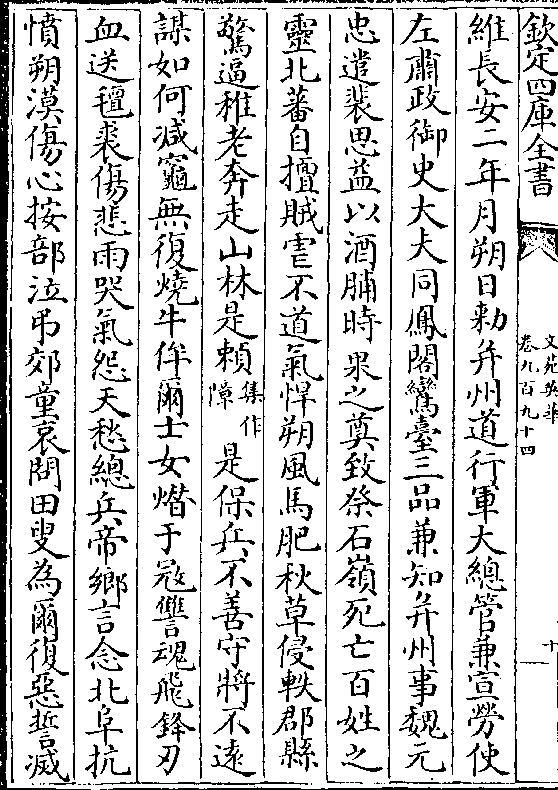 欽定四庫全書
文苑英華
卷九百九十四
十一
維長安二年月朔日勅并州道行軍大總管兼宣勞使
左肅政御史大夫同鳳閣鸞臺三品兼知并州事魏元
忠遣裴思益以酒脯時果之奠致祭石嶺死亡百姓之
靈北蕃自擅賊虐不道氣悍朔風馬肥秋草侵軼郡縣
驚逼稚老奔走山林是賴集作障是保兵不善守將不遠
謀如何減竈無復燒牛俾爾士女熸于冦讐魂飛鋒刃
血送氊裘傷悲雨哭氣怨天愁總兵帝鄉言念北阜抗
憤朔漠傷心按部泣弔郊童哀問田叟為爾復惡誓滅